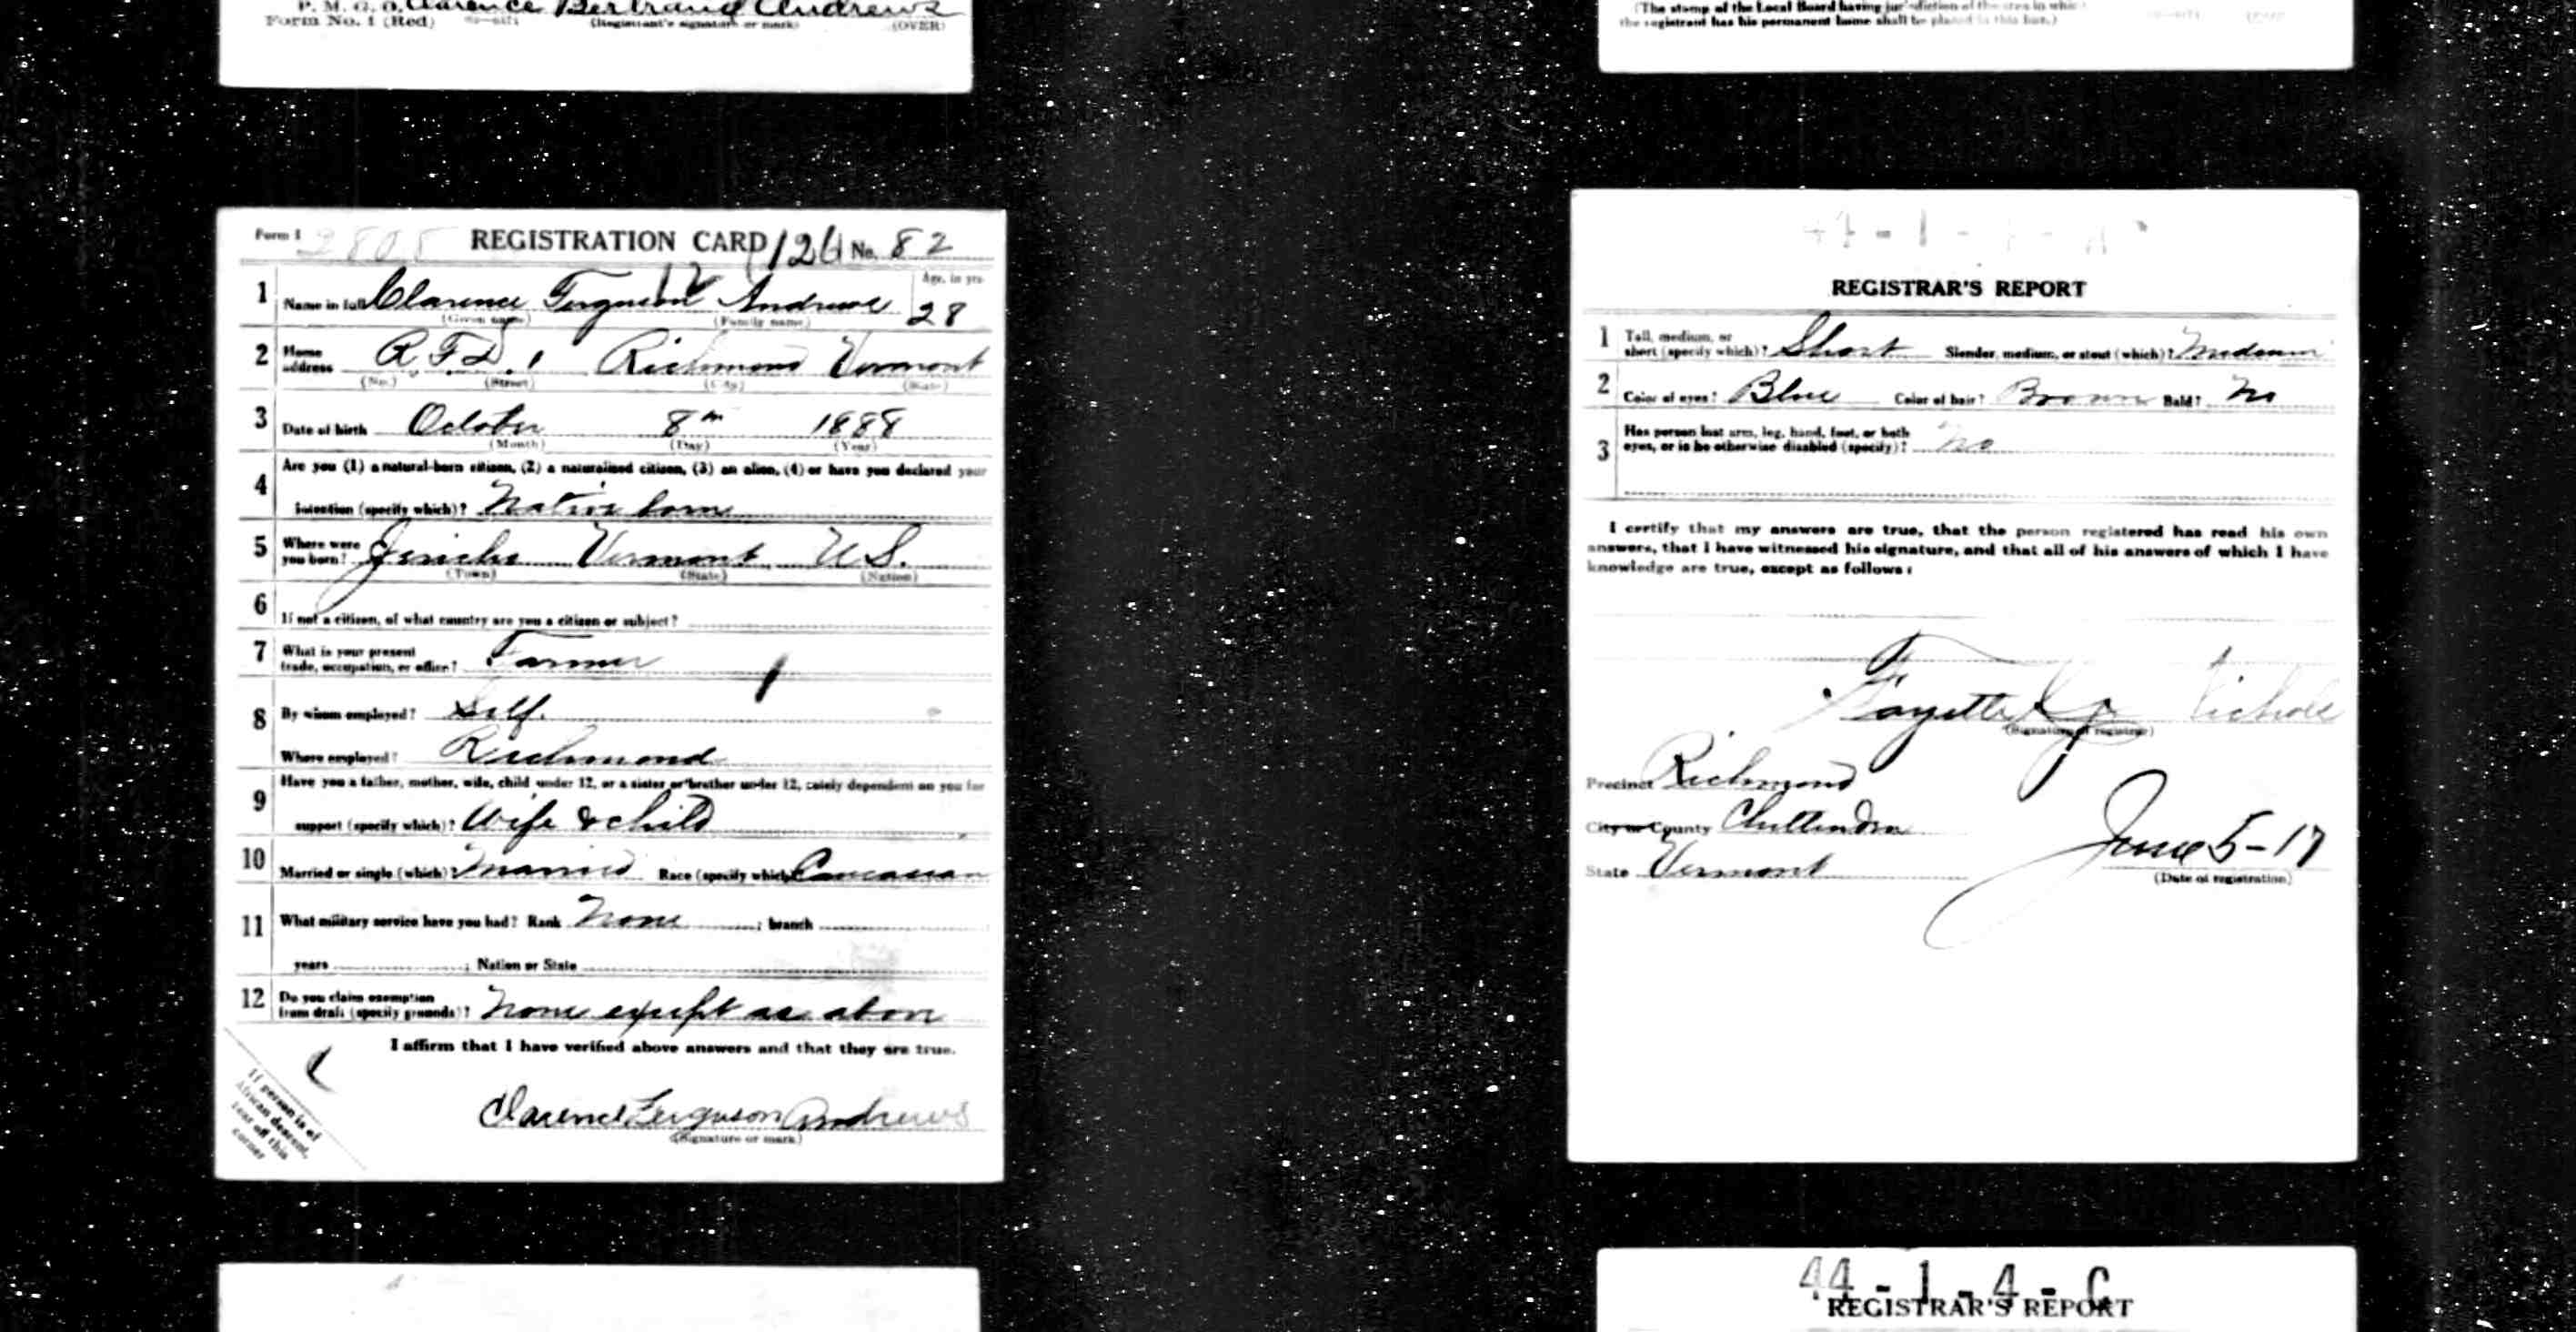 P. M. G. O. Clarence Bertrand Andrews
Form No. 1 (Red) (Registrant's signature or mark) (OVER)
(The stamp of the Local Board having jurisdiction of the area in which
the registrant has his permanent home shall be placed in this box.)
Form 1 2805 REGISTRATION CARD 126 No. 82
12
Age, in yrs.
1 Name in full Clarence Ferguson Andrews 28
(Given name) (Family name)
2 Home address R.F.D. 1 Richmond Vermont
(No.) (Street) (City) (State)
3 Date of birth October 8th 1888
(Month) (Day) (Year)
4 Are you (1) a natural-born citizen, (2) a naturalized citizen, (3) an alien, (4) or have you declared your
intention (specify which)? Native born
5 Where were you born? Jericho Vermont U.S.
(Town) (State) (Nation)
6 If not a citizen, of what country are you a citizen or subject?
7 What is your present
trade, occupation, or office? Farmer
8 By whom employed? Self.
Where employed? Richmond
9 Have you a father, mother, wife, child under 12, or a sister or brother under 12, solely dependent on you for
support (specify which)? Wife & child
10 Married or single (which)? Married Race (specify which)? Caucasian
11 What military service have you had? Rank None ; branch
years ; Nation or State
12 Do you claim exemption
from draft (specify grounds)? None except as above
I affirm that I have verified above answers and that they are true.
Clarence Ferguson Andrews
(Signature or mark)
If person is of
African descent,
tear off this
corner
REGISTRAR'S REPORT
1 Tall, medium, or
short (specify which)? Short Slender, medium, or stout (which)? Medium
2 Color of eyes? Blue Color of hair? Brown Bald? No
3 Has person lost arm, leg, hand, foot, or both
eyes, or is he otherwise disabled (specify)? No
I certify that my answers are true, that the person registered has read his own
answers, that I have witnessed his signature, and that all of his answers of which I have
knowledge are true, except as follows:
Fayette J Nichols
(Signature of registrar)
Precinct Richmond
City or County Chittenden
State Vermont
June 5-17
(Date of registration)
44-1-4-C
REGISTRAR'S REPORT